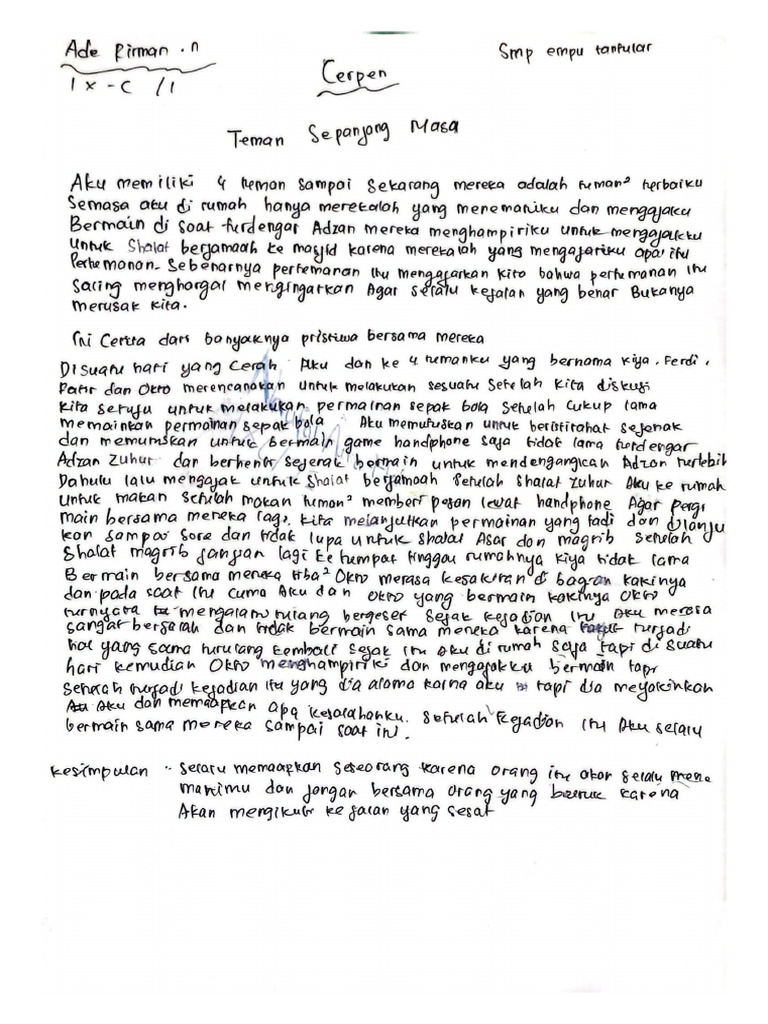 Ade Firman .n
Smp empu tantular
IX-C /1
Cerpen
Teman Sepanjang Masa
Aku memiliki 4 teman sampai sekarang mereka adalah teman² terbaiku
Semasa aku di rumah hanya merekalah yang menemaniku dan mengajaku
Bermain di saat terdengar Adzan mereka menghampiriku untuk mengajakku
Untuk Shalat berjamaah ke masjid karena merekalah yang mengajariku apa itu
Pertemanan. Sebenarnya pertemanan itu mengajarkan kita bahwa pertemanan itu
Saling menghargai mengingatkan Agar selalu kejalan yang benar Bukanya
merusak kita.
Ini Cerita dari banyaknya pristiwa bersama mereka
Disuatu hari yang Cerah Aku dan ke 4 temanku yang bernama Kiya. Ferdi.
dan Okto merencanakan untuk melakukan sesuatu Setelah kita diskusi
kita setuju untuk melakukan permainan sepak bola Setelah Cukup lama
memainkan permainan sepak bola Aku memutuskan untuk beristirahat sejenak
dan memutuskan untuk bermain game handphone saja tidak lama terdengar
Adzan Zuhur dan berhenti sejenak bermain untuk mendengangkan Adzan terlebih
Dahulu lalu mengajak untuk Shalat berjamaah setelah shalat zuhur Aku ke rumah
Untuk makan setelah makan teman² memberi pesan lewat handphone Agar pergi
main bersama mereka lagi. Kita melanjutkan permainan yang tadi dan Dilanju
kan sampai sore dan tidak lupa untuk shalat Asar dan magrib setelah
Shalat magrib lagi ke tempat tinggal rumahnya Kiya tidak lama
Bermain bersama mereka tiba² Okto merasa kesakitan di bagian kakinya
dan pada saat itu Cuma Aku dan Okto yang bermain kakinya Okto
ternyata mengalami tulang bergeser Sejak kejadian itu Aku merasa
sangat bersalah dan tidak bermain sama mereka karena takut terjadi
hal yang sama terulang kembali Sejak itu Aku di rumah saja tapi di suatu
hari kemudian Okto menghampiriki dan mengajakku bermain tapi
setelah terjadi kejadian itu yang dia alama karna aku tapi dia meyakinkan
Aku dan memaafkan apa kesalahanku. Setelah kejadian itu Aku selalu
bermain sama mereka sampai saat ini.
Kesimpulan :- Selalu memaafkan seseorang karena orang itu akan selalu mene
manimu dan jangan bersama orang yang buruk karena
Akan mengikuti ke jalan yang sesat